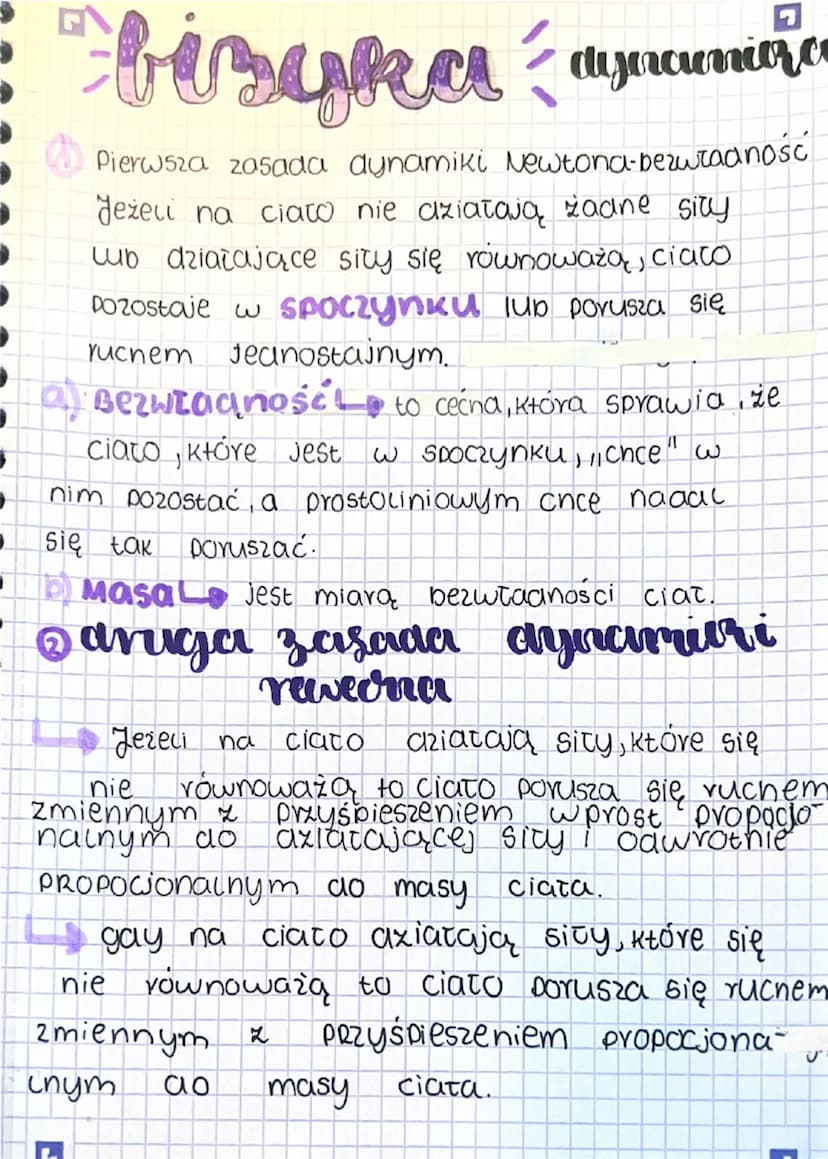 fizyka dynamika
1) Pierwsza zasada dynamiki Newtona-bezwładność
Jeżeli na ciało nie działają żadne siły
lub działające siły się równoważą, ciało
pozostaje w spoczynku lub porusza się
ruchem jednostajnym.
a) Bezwładność↳ to cecha, która sprawia, że
ciało, które jest w spoczynku, „chce" w
nim pozostać, a prostoliniowym chce nadal
się tak poruszać.
b) Masa↳ jest miarą bezwładności ciał.
② druga zasada dynamiki
newtona
↳ Jeżeli na ciało działają siły, które się
nie równoważą to ciało porusza się ruchem
zmiennym z przyśpieszeniem wprost propocjo-
nalnym do działającej siły i odwrotnie
propocjonalnym do masy ciała.
↳ gdy na ciało działają siły, które się
nie równoważą to ciało porusza się ruchem
zmiennym z przyśpieszeniem propocjona-
lnym do masy ciała.